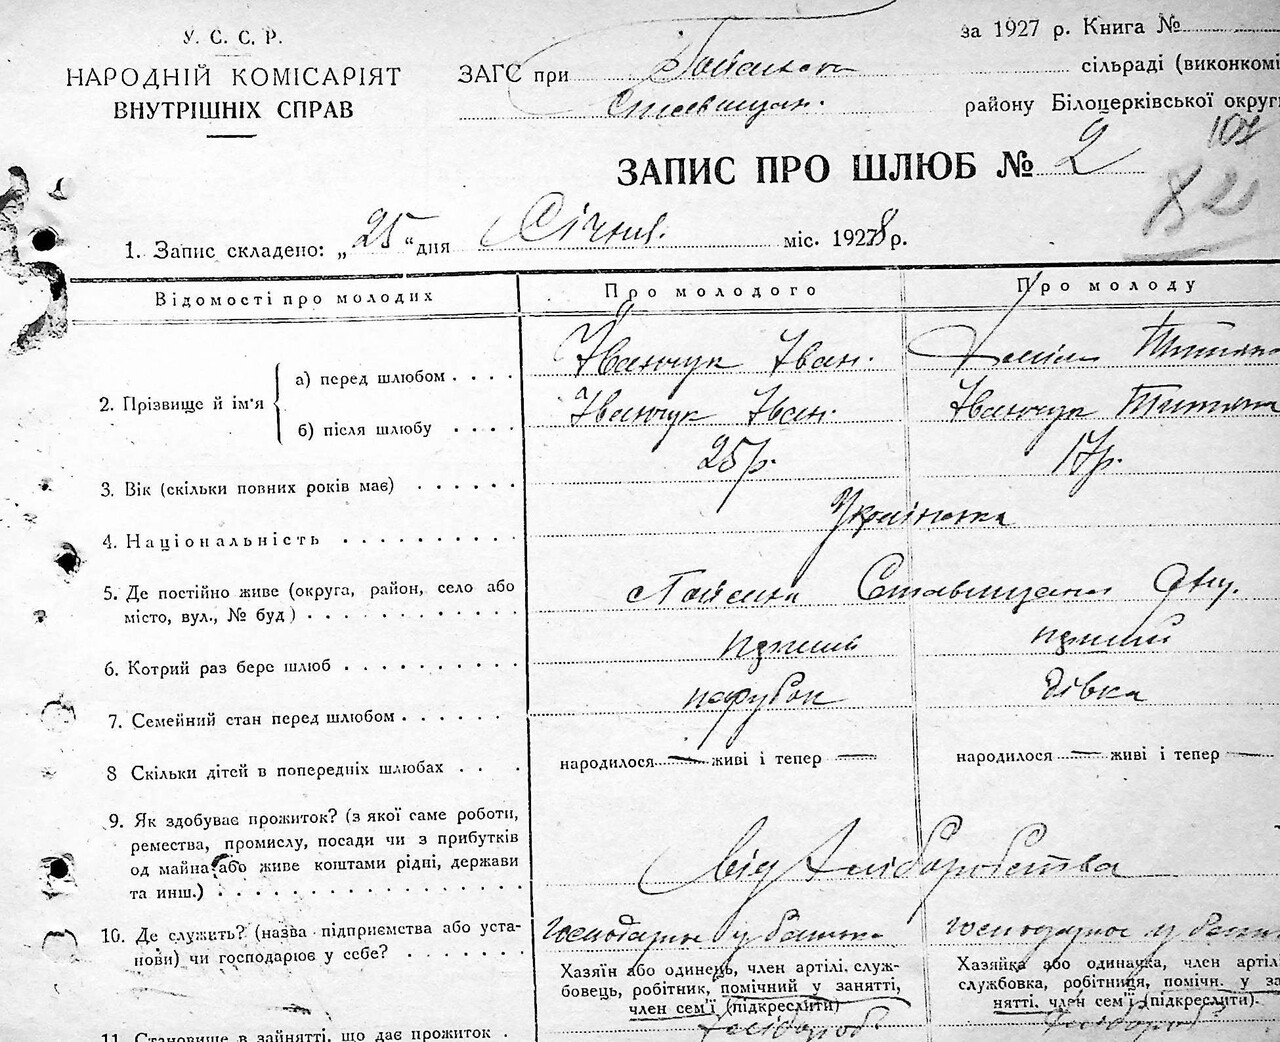 У. С. С. Р.
НАРОДНІЙ КОМІСАРІЯТ
ВНУТРІШНІХ СПРАВ
за 1927 р. Книга №
ЗАГС при сільраді (виконкомі
Ставищан. району Білоцерківської округи
ЗАПИС ПРО ШЛЮБ № 2
101
82
1. Запис складено: „ 25 “ дня Січня. міс. 1928 р.
Відомості про молодих
Про молодого
Про молоду
2. Прізвище й ім'я
а) перед шлюбом . . . .
Іванчук Іван. Тетяна
б) після шлюбу . . . .
Іванчук Іван. Іванчук Тетяна
3. Вік (скільки повних років має) . . . . . .
25 р. 17 р.
4. Національність . . . . . . . . . .
Українська
5. Де постійно живе (округа, район, село або
місто, вул., № буд) . . . . . . . . . . .
Ставищан
6. Котрий раз бере шлюб . . . . . . . . .
перший перший
7. Семейний стан перед шлюбом . . . . . .
парубок дівка
8 Скільки дітей в попередніх шлюбах . . . .
народилося — живі і тепер —
народилося — живі і тепер —
9. Як здобуває прожиток? (з якої саме роботи,
ремества, промислу, посади чи з прибутків
од майна або живе коштами рідні, держави
та инш.) . . . . . . . . . . . . . . .
від хліборобства
10. Де служить? (назва підприємства або уста-
нови) чи господарює у себе? . . . . . . .
господарює у батька
господарює у
Хазяїн або одинець, член артілі, служ-
бовець, робітник, помічний у занятті,
член сем'ї (підкреслити)
Хазяйка або одиначка, член артілі
службовка, робітниця, помічн. у за
нятті, член сем'ї (підкреслити).
11. Становище в зайнятті, що дає прожиток .
хлібороб
хлібороб